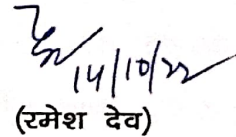 14/10/22
(रमेश देव)